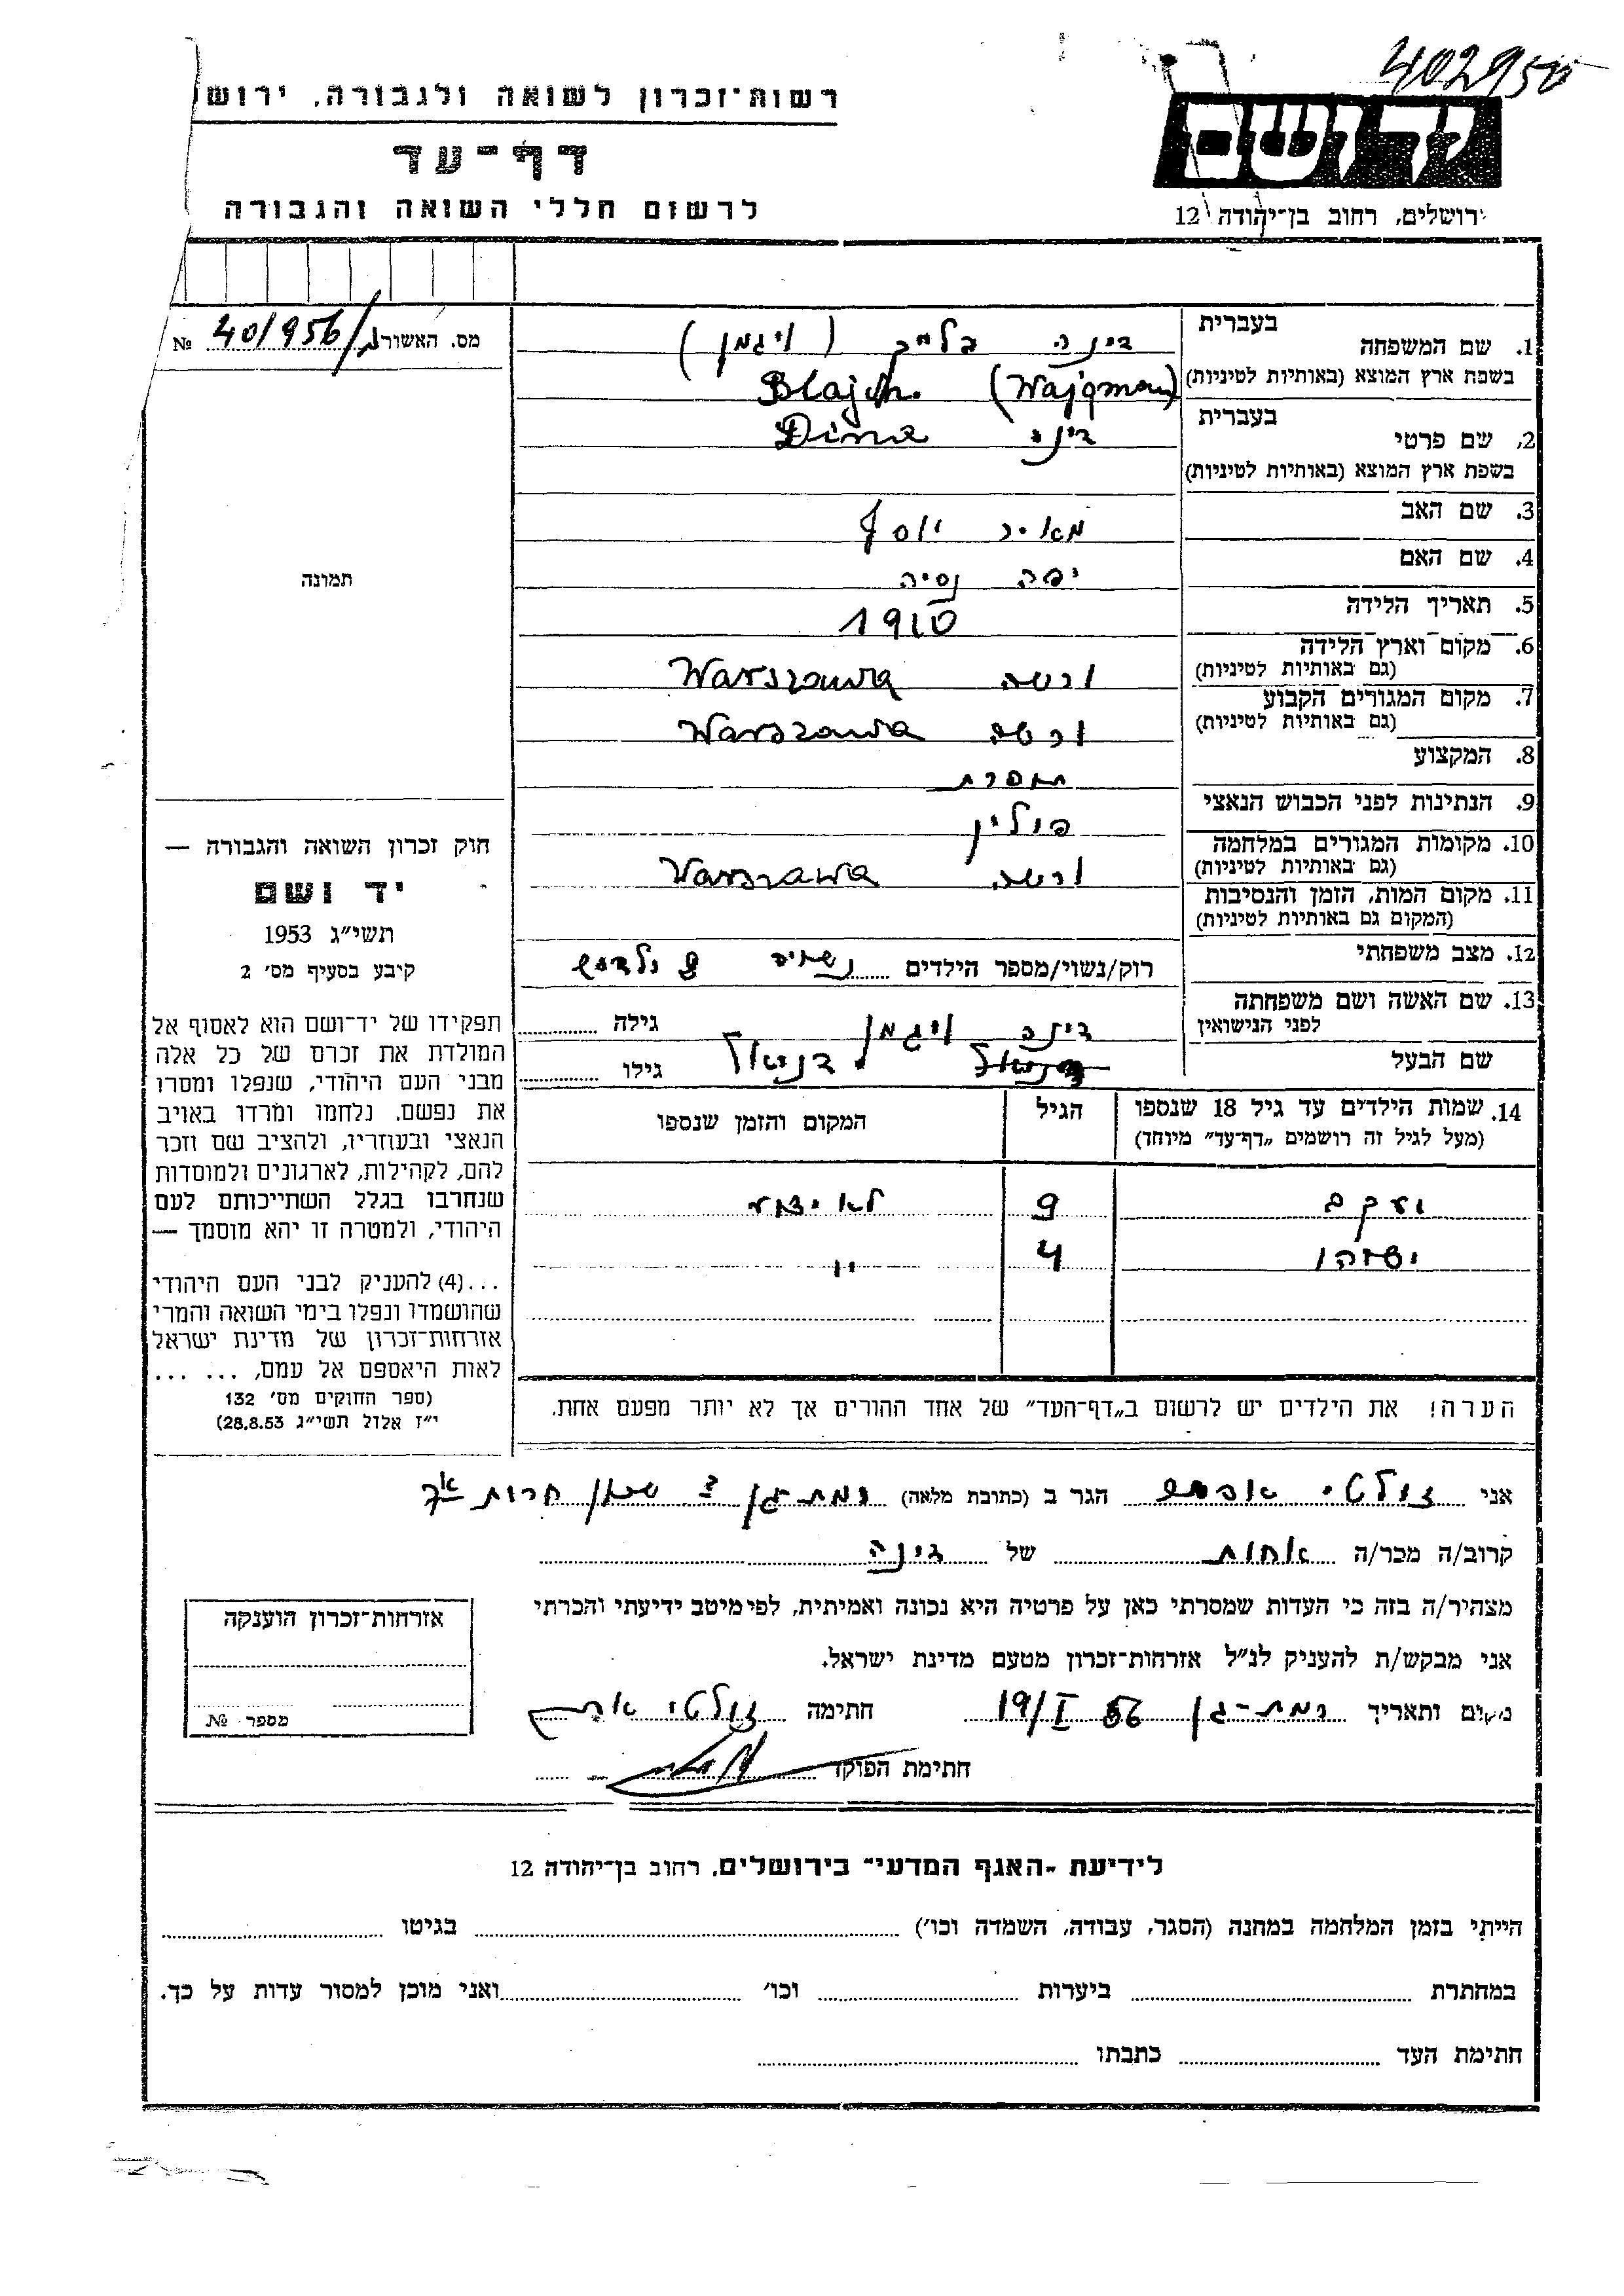 402950
רשות־זכרון לשואה ולגבורה, ירוש
דף־עד
לרשום חללי השואה והגבורה
יד ושם
ירושלים, רחוב בן־יהודה 12
מס. האשור 40/956/ №
תמונה
1. שם המשפחה
בעברית
דינה בלייך (ויגמן)
בשפת ארץ המוצא (באותיות לטיניות)
Blajch. (Wajgman)
2. שם פרטי
בעברית
דינה Dina
בשפת ארץ המוצא (באותיות לטיניות)
3. שם האב מאיר יוסף
4. שם האם יפה נסיה
5. תאריך הלידה 1910
6. מקום וארץ הלידה
(גם באותיות לטיניות) ורשה Warszawa
7. מקום המגורים הקבוע
(גם באותיות לטיניות) ורשה Warszawa
8. המקצוע תופרת
9. הנתינות לפני הכבוש הנאצי פולין
10. מקומות המגורים במלחמה
(גם באותיות לטיניות) ורשה Warszawa
11. מקום המות, הזמן והנסיבות
(המקום גם באותיות לטיניות)
12. מצב משפחתי רוק/נשוי/מספר הילדים נשואה
13. שם האשה ושם משפחתה
לפני הנישואין דינה ויגמן גילה
שם הבעל דניאל גילו
14. שמות הילדים עד גיל 18 שנספו הגיל המקום והזמן שנספו
(מעל לגיל זה רושמים „דף־עד” מיוחד)
יעקב 9 לא ידוע
ישעהו 4 "
הערה! את הילדים יש לרשום ב„דף־העד” של אחד ההורים אך לא יותר מפעם אחת.
חוק זכרון השואה והגבורה —
יד ושם
תשי״ג 1953
קיבע בסעיף מס׳ 2
תפקידו של יד־ושם הוא לאסוף אל
המולדת את זכרם של כל אלה
מבני העם היהודי, שנפלו ומסרו
את נפשם, נלחמו ומרדו באויב
הנאצי ובעוזריו, ולהציב שם וזכר
להם, לקהילות, לארגונים ולמוסדות
שנחרבו בגלל השתייכותם לעם
היהודי, ולמטרה זו יהא מוסמך —
...(4) להעניק לבני העם היהודי
שהושמדו ונפלו בימי השואה והמרי
אזרחות־זכרון של מדינת ישראל
לאות היאספם אל עמם, ... ...
(ספר החוקים מס׳ 132
י״ז אלול תשי״ג 28.8.53)
אני זולטי הגר ב (כתובת מלאה) רמת־גן חרות
קרוב/ה מכר/ה אחות של דינה
מצהיר/ה בזה כי העדות שמסרתי כאן על פרטיה היא נכונה ואמיתית, לפי מיטב ידיעתי והכרתי
אני מבקש/ת להעניק לנ״ל אזרחות־זכרון מטעם מדינת ישראל.
מקום ותאריך רמת־גן 19/I 56 חתימה זולטי
חתימת הפוקד
אזרחות־זכרון הוענקה
מספר №
לידיעת „האגף המדעי” בירושלים, רחוב בן־יהודה 12
הייתי בזמן המלחמה במחנה (הסגר, עבודה, השמדה וכו׳) בגיטו
במחתרת ביערות וכו׳ ואני מוכן למסור עדות על כך.
חתימת העד כתבתו